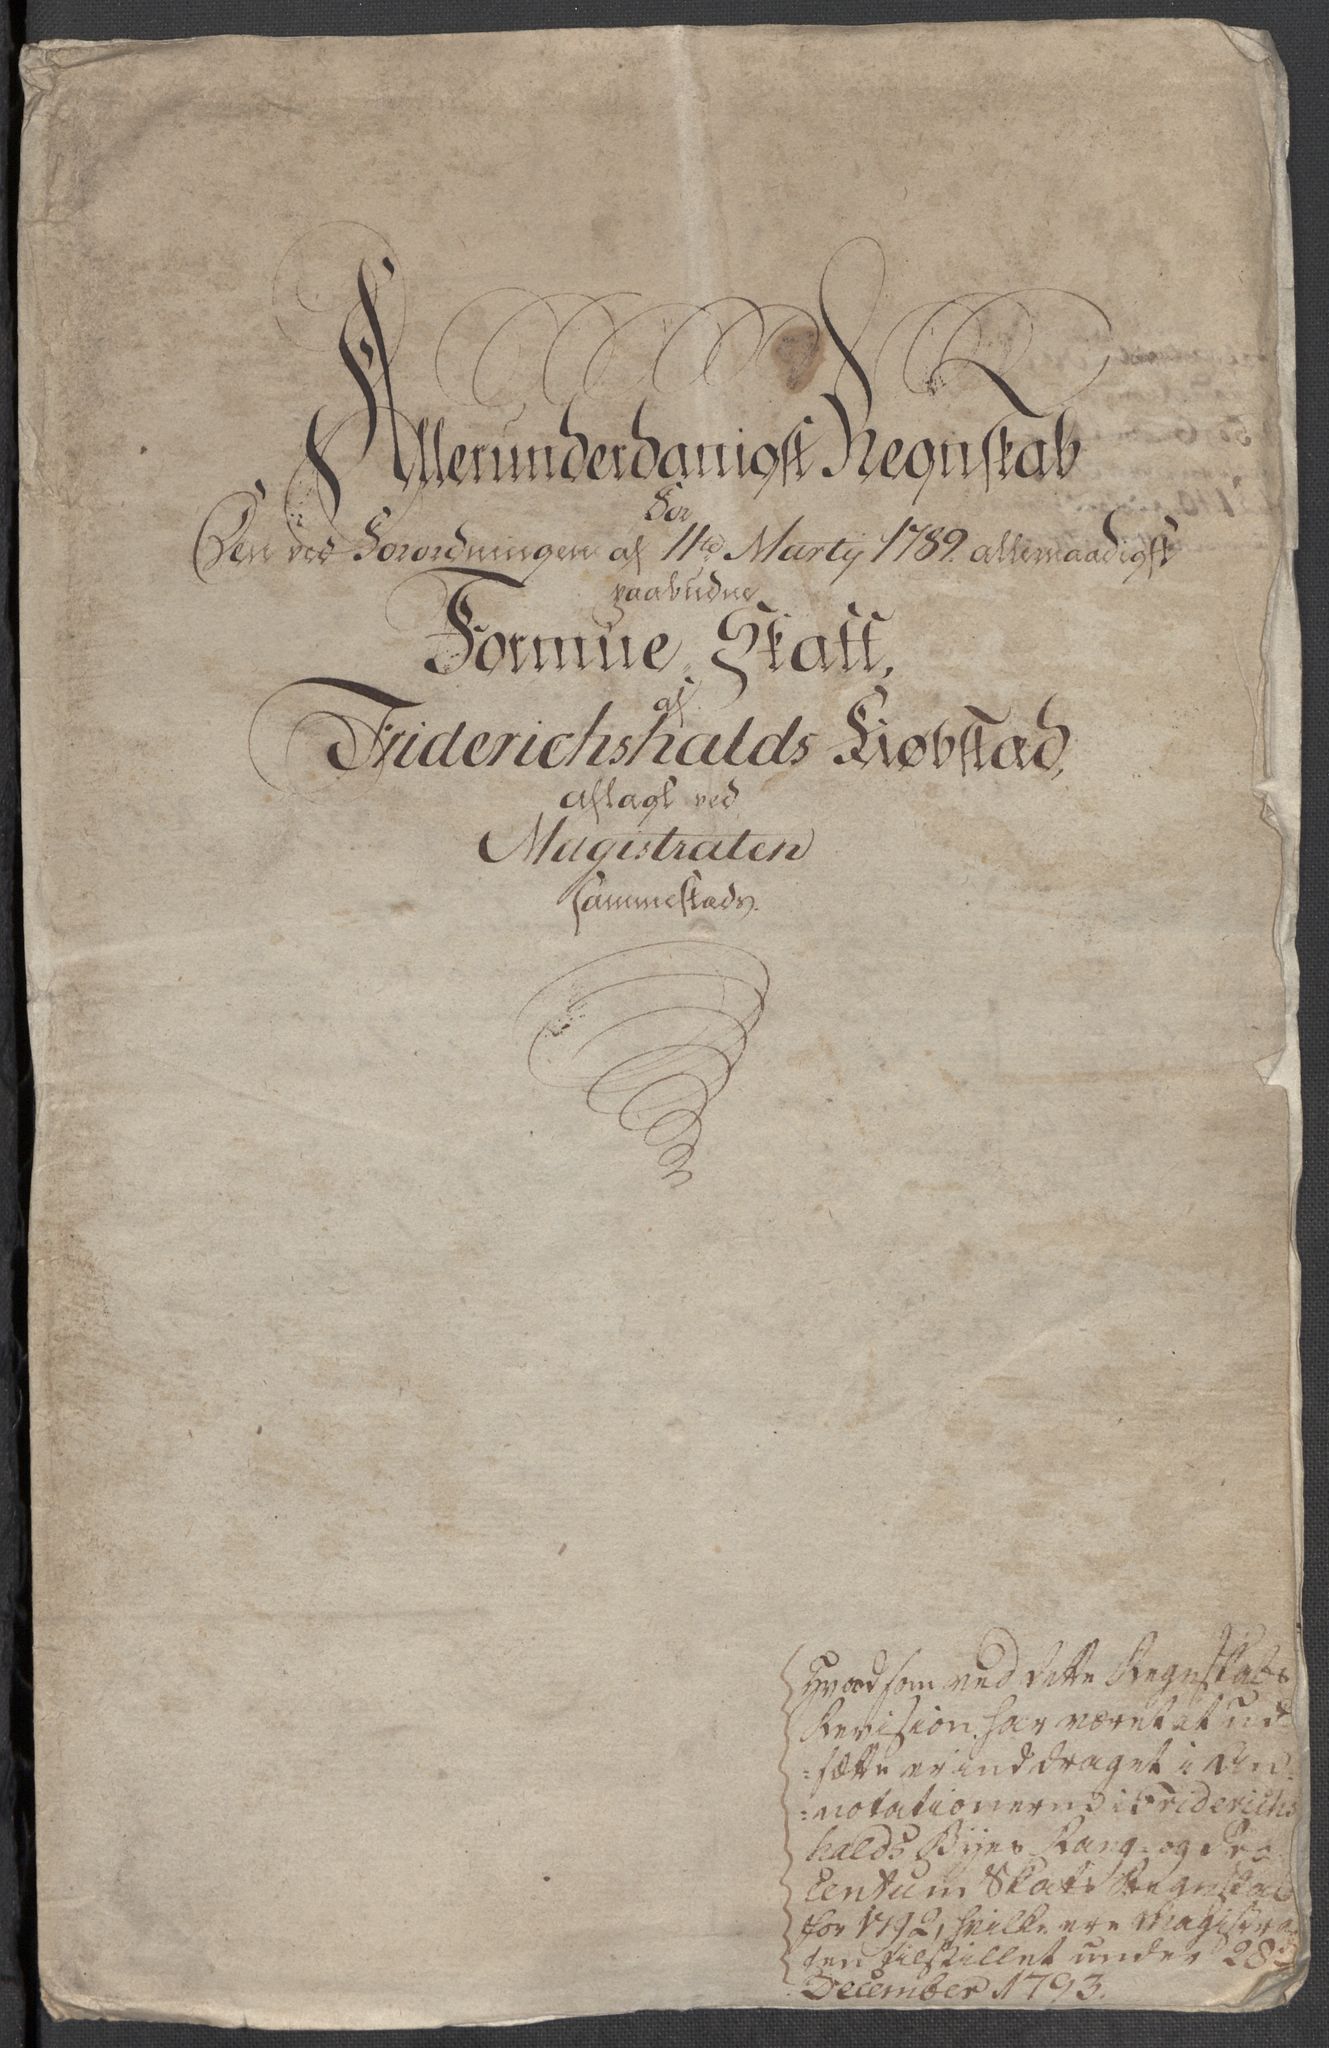 Allerunderdanigst Regnskab
For
Den ved Forordningen af 11te Martij 1789 allernaadigst
paabudne
Formue-Skatt,
af
Friderichshalds Kiøbstæd,
aflagt ved
Magistraten
sammestads.
Hvad som ved dette Regnskabs
Revision har været at ud-
=sætte er inddraget i An-
=notationerne i Friderichs
halds Byes Rang- og Pro
Centum Skatts Regnskab
for 1792, hvilke ere Magistra
ten tilstillet under 28d
December 1793.